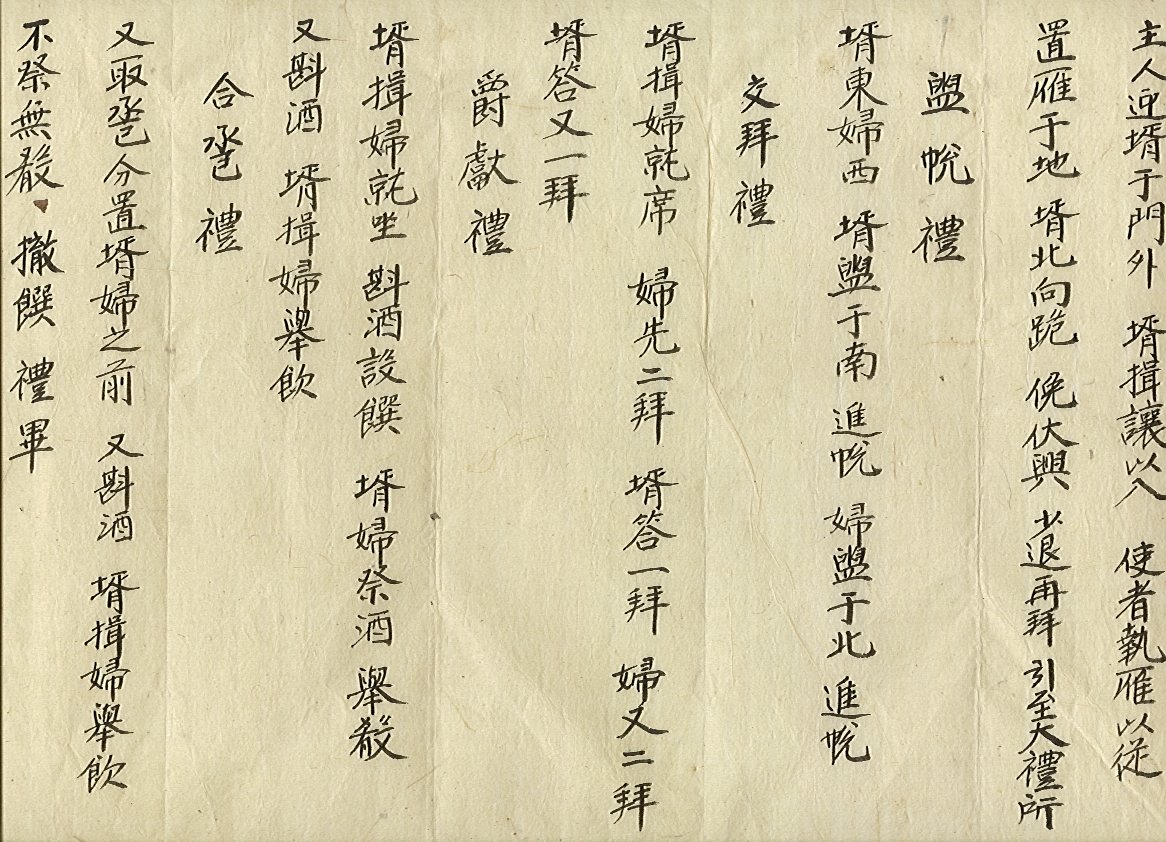 主人迎壻于門外 壻揖讓以入 使者執雁以從
置雁于地 壻北向跪 俛伏興 少退再拜 引至大禮所
盥帨禮
壻東婦西 壻盥于南 進帨 婦盥于北 進帨
交拜禮
壻揖婦就席 婦先二拜 壻答一拜 婦又二拜
壻答又一拜
爵獻禮
壻揖婦就坐 斟酒設饌 壻婦祭酒 舉殽
又斟酒 壻揖婦舉飮
合巹禮
又取巹分置壻婦之前 又斟酒 壻揖婦舉飮
不祭無殽 撤饌 禮畢